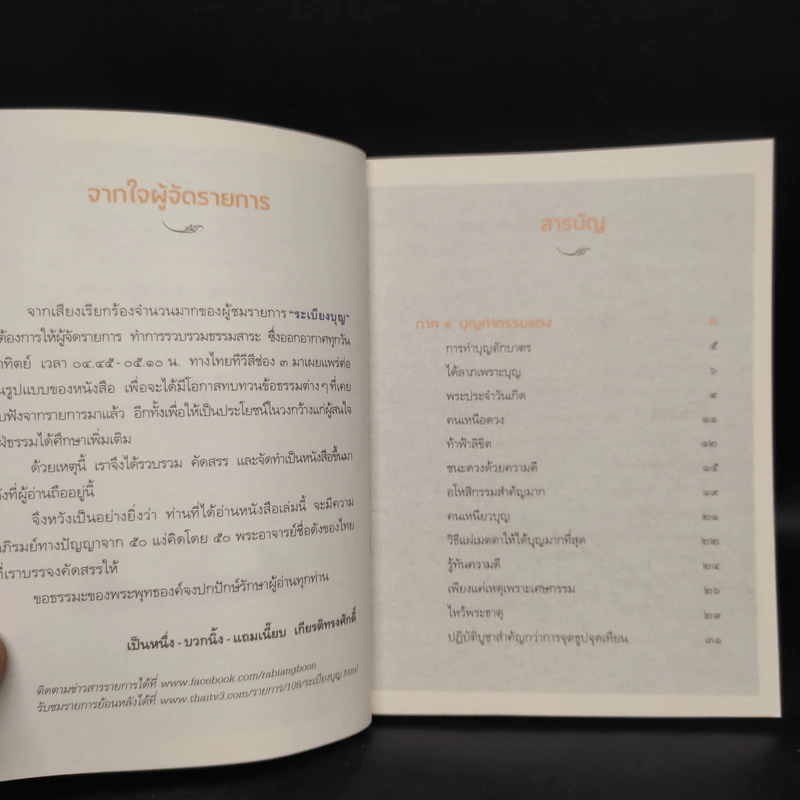 จากใจผู้จัดรายการ
จากเสียงเรียกร้องจำนวนมากของผู้ชมรายการ "ระเบียงบุญ"
ต้องการให้ผู้จัดรายการ ทำการรวบรวมธรรมสาระ ซึ่งออกอากาศทุกวัน
าทิตย์ เวลา ๐๔.๔๕-๐๕.๑๐ น. ทางไทยทีวีสีช่อง ๓ มาเผยแพร่ต่อ
นรูปแบบของหนังสือ เพื่อจะได้มีโอกาสทบทวนข้อธรรมต่างๆที่เคย
ับฟังจากรายการมาแล้ว อีกทั้งเพื่อให้เป็นประโยชน์ในวงกว้างแก่ผู้สนใจ
ฝ่ธรรมได้ศึกษาเพิ่มเติม
ด้วยเหตุนี้ เราจึงได้รวบรวม คัดสรร และจัดทำเป็นหนังสือขึ้นมา
ังที่ผู้อ่านถืออยู่นี้
จึงหวังเป็นอย่างยิ่งว่า ท่านที่ได้อ่านหนังสือเล่มนี้ จะมีความ
ภิรมย์ทางปัญญาจาก ๕๐ แง่คิดโดย ๕๐ พระอาจารย์ชื่อดังของไทย
ที่เราบรรจงคัดสรรให้
ขอธรรมะของพระพุทธองค์จงปกปักษ์รักษาผู้อ่านทุกท่าน
เป็นหนึ่ง - บวกนิ้ง - แถมเนี๊ยบ เกียรติทรงศักดิ์
ติดตามข่าวสารรายการได้ที่ www.facebook.com/rabiangboon
รับชมรายการย้อนหลังได้ที่ www.thaitv3.com/รายการ/108/ระเบียงบุญ.html
สารบัญ
ภาค ๑ บุญทำกรรมแต่ง ๑
การทำบุญตักบาตร ๕
ได้ลาภเพราะบุญ ๖
พระประจำวันเกิด ๙
คนเหนือดวง ๑๑
ท้าฟ้าลิขิต ๑๒
ชนะดวงด้วยความดี ๑๕
อโหสิกรรมสำคัญมาก ๑๙
คนเหนียวบุญ ๒๑
วิธีแผ่เมตตาให้ได้บุญมากที่สุด ๒๒
รู้ทันความดี ๒๔
เพียงแค่เหตุเพราะเศษกรรม ๒๖
ไหว้พระธาตุ ๒๙
ปฏิบัติบูชาสำคัญกว่าการจุดธูปจุดเทียน ๓๑